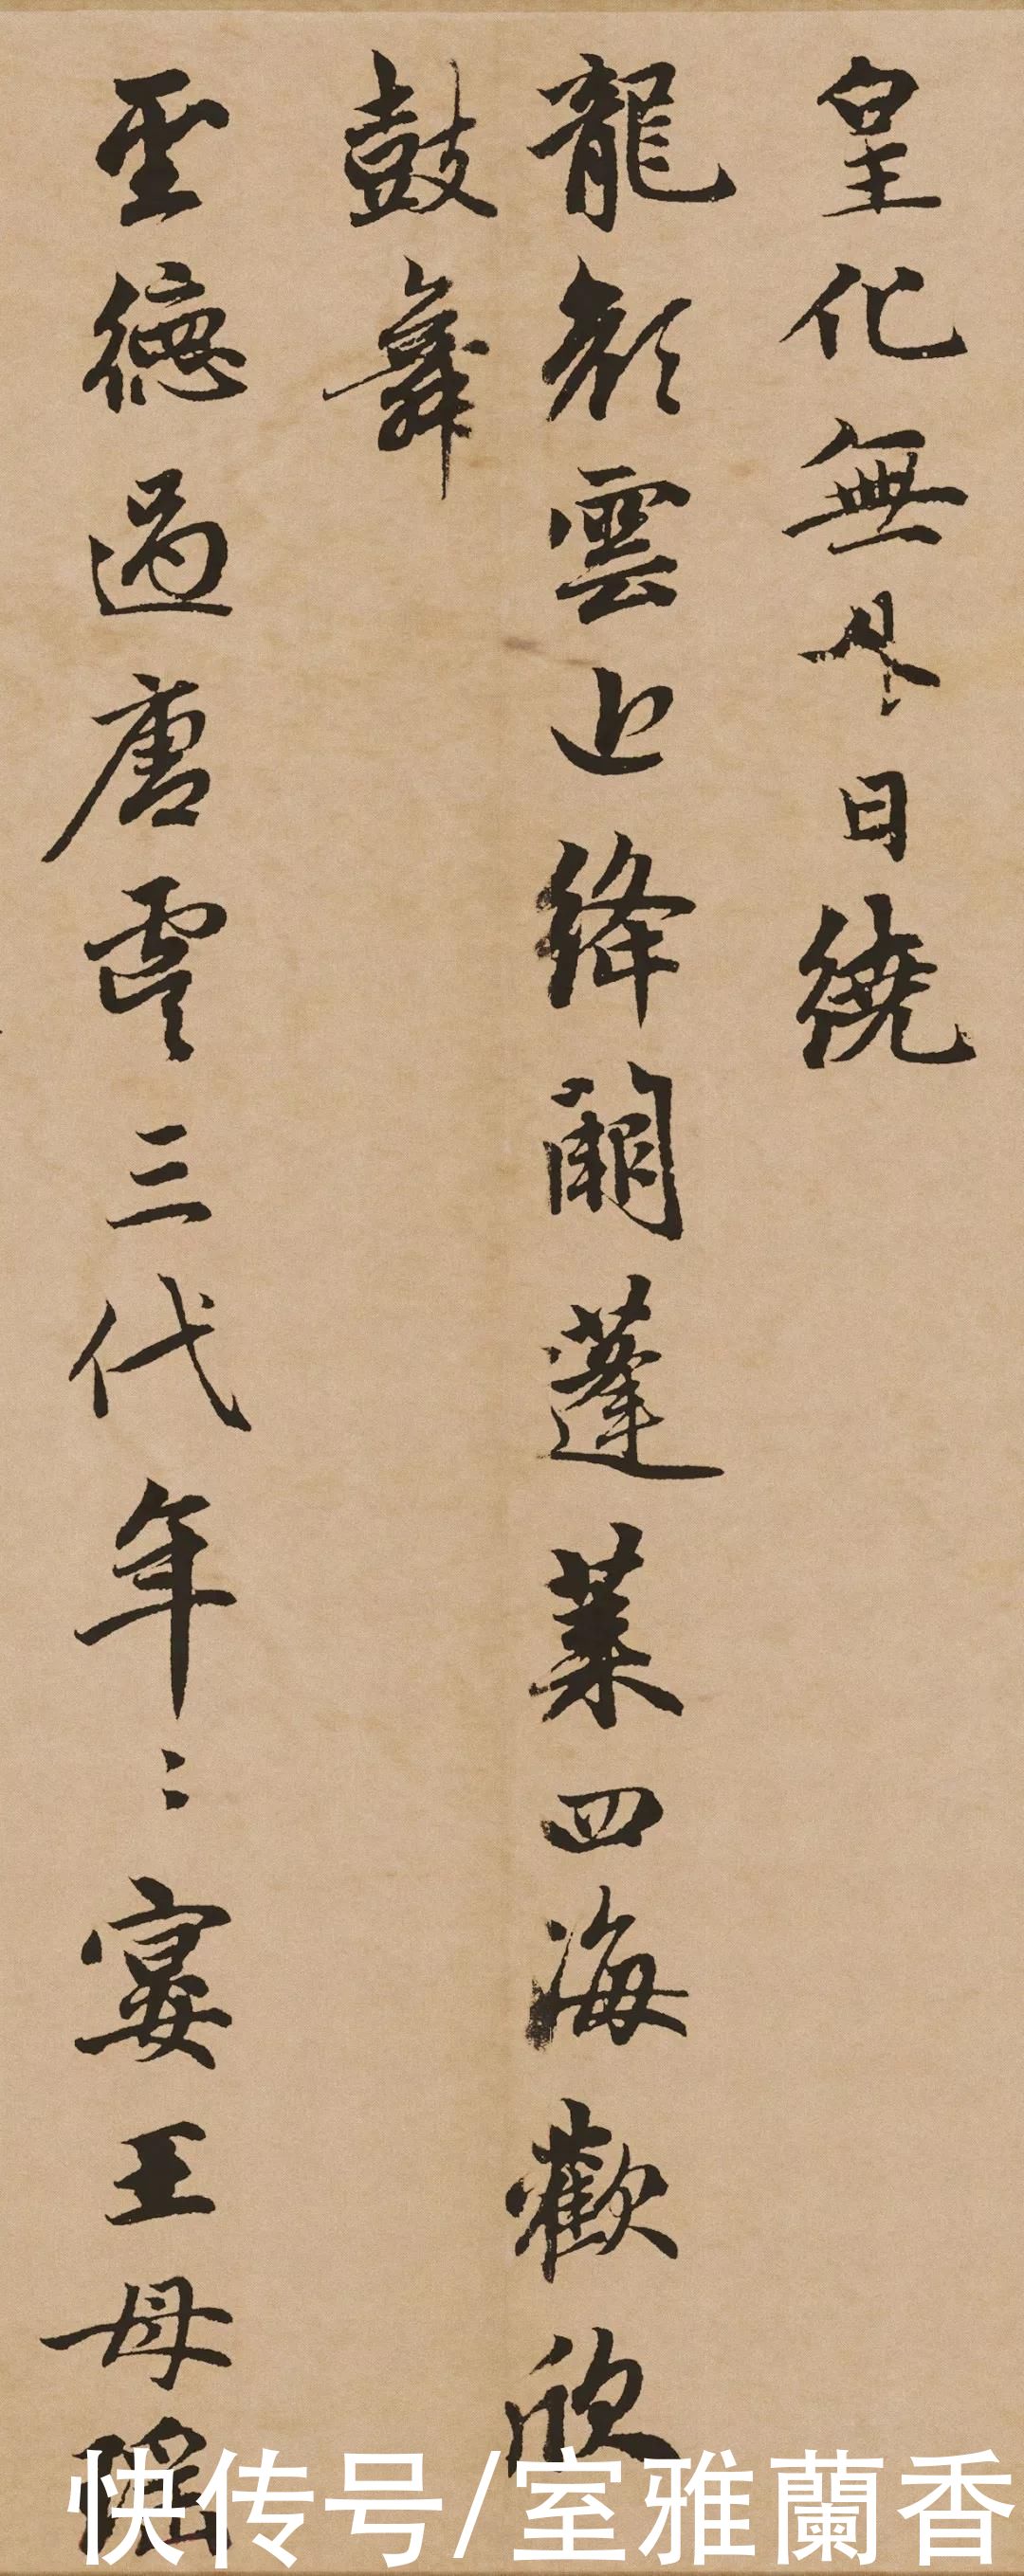 皇化無外日繞
龍顏雲近絳闕蓬萊四海歡欣
鼓舞
聖德過唐虞三代年〻宴王母瑶
快传号/室雅蘭香